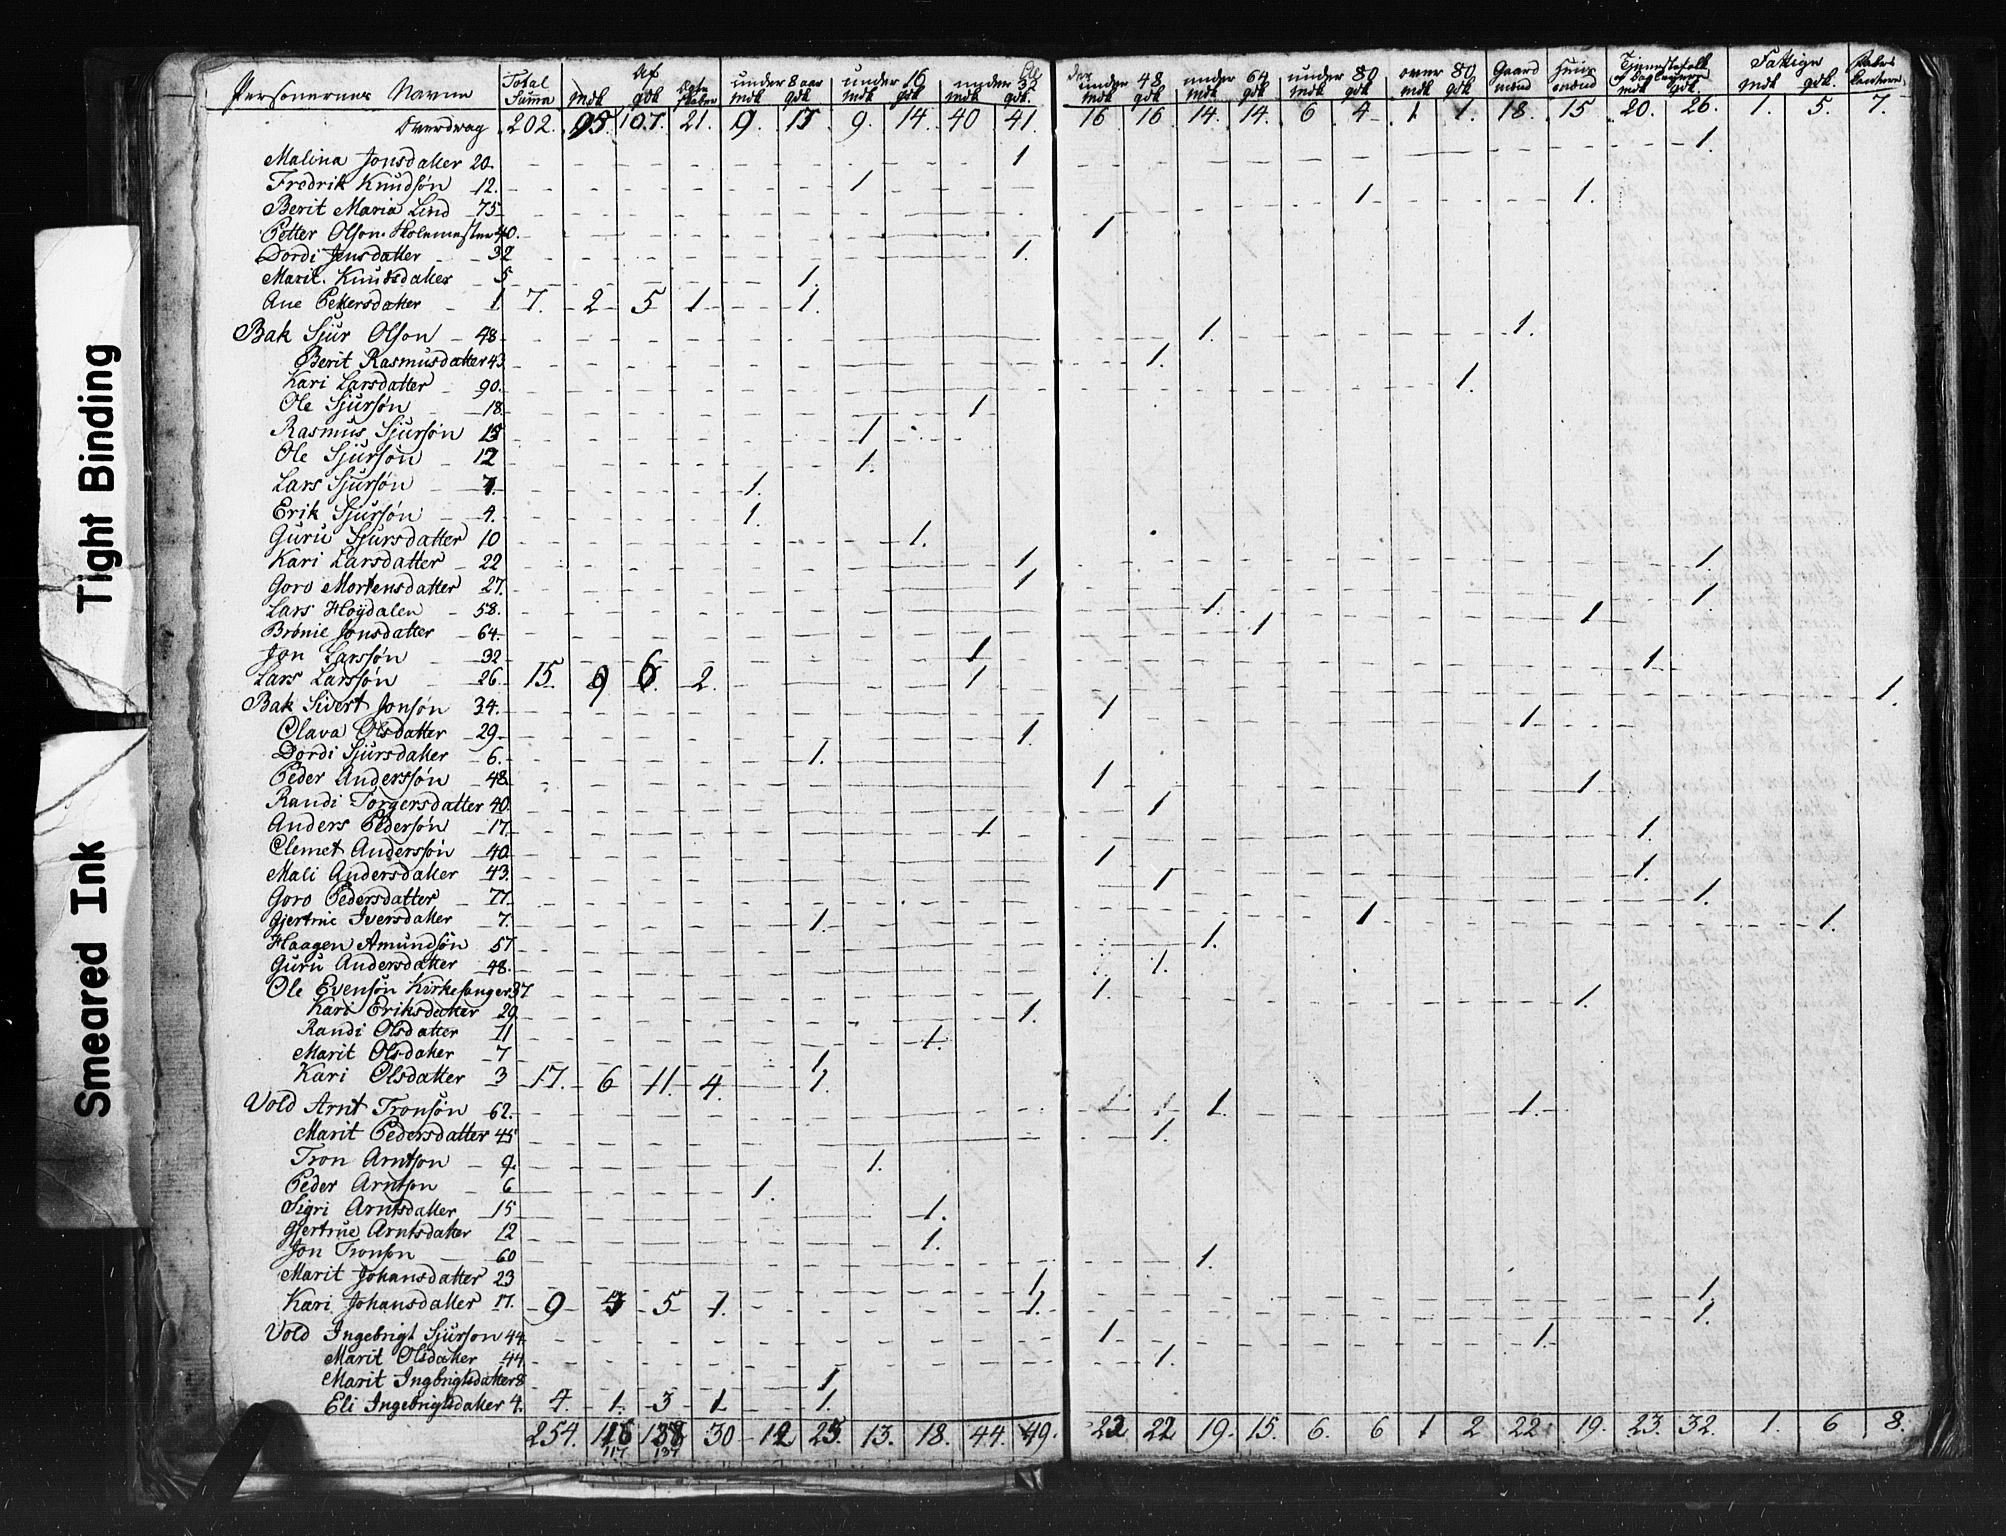 Tight Binding
Smeared Ink
Personernes Navne Total Summa Af mdk gdk under 8 aar mdk qdk under 16 mdk gdk under 32 mdk gdk. under 48 mdk gdk under 64 mdk gdk under 80 mdk gdk over 80 mdk gdk Gaard mænd Huus mænd Tjenestefolk mdk gdk. Fattige mdk gdk.
Overdrag 202. 95 107. 21. 9. 15 9. 14. 40 41. 16 16. 14. 14. 6 4 1 1. 18. 15 20. 26. 1. 5. 7.
Malina Jonsdatter 20. 1 1.
Fredrik Knudsøn 12. 1
Berit Maria Lind 75 1 1.
Petter Olson Skolemester 40. 1
Dordi Jensdatter 32 1.
Marit Knutsdatter 5 1.
Ane Pettersdatter 1 7. 2 5 1 1.
Bak Sjur Olson 48 1. 1.
Berit Rasmusdatter 43 1.
Kari Larsdatter 90. 1.
Ole Sjursøn 18. 1
Rasmus Sjursøn 15 1
Ole Sjursøn 12 1.
Lars Sjursøn 7. 1.
Erik Sjursøn 4. 1.
Guru Sjursdatter 10 1.
Kari Larsdatter 22 1 1.
Goro Mortensdatter 27. 1 1.
Lars Høydalen 58. 1. 1
Brønie Jonsdatter 64. 1
Jon Larssøn 32 1 1
Lars Larssøn 26. 15. 9 6. 2. 1 1.
Bak Sivert Jonsøn 34. 1 1.
Olava Olsdatter 29 1.
Dordi Sjursdatter 6. 1.
Peder Anderssøn 48. 1 1
Randi Torgersdatter 40. 1
Anders Pedersøn 17. 1 1.
Clemet Anderssøn 40. 1 1.
Mali Andersdatter 43. 1 1.
Goro Pedersdatter 77. 1 1.
Gjertrue Iversdatter 7. 1.
Haagen Amundsøn 57 1.
Guru Andersdatter 48. 1.
Ole Evensøn Kirkesanger 37 1. 1.
Kari Eriksdatter 29. 1.
Randi Olsdatter 11 1.
Marit Olsdatter 7 1
Kari Olsdatter 3 17. 6 11 4. 1.
Vold Arnt Tronsøn 62. 1. 1.
Marit Pedersdatter 45 1.
Tron Arntson 9. 1.
Peder Arntson 6 1.
Sigri Arntsdatter 15 1.
Gjertrue Arntsdatter 12 1.
Jon Tronson 60 1.
Marit Johansdatter 23 1 1.
Kari Johansdatter 17. 9 5 1. 1. 1.
Vold Ingebrigt Sjurson 44. 1 1.
Marit Olsdatter 44. 1.
Marit Ingbrigtsdatter 8 1
Eli Ingebrigtsdatter 4. 4. 1. 3 1 1.
254. 30 12 23. 13. 18. 44. 49. 22 22 19. 15. 6. 6 1 2 22 19. 23. 32. 1. 6 8.
117 137